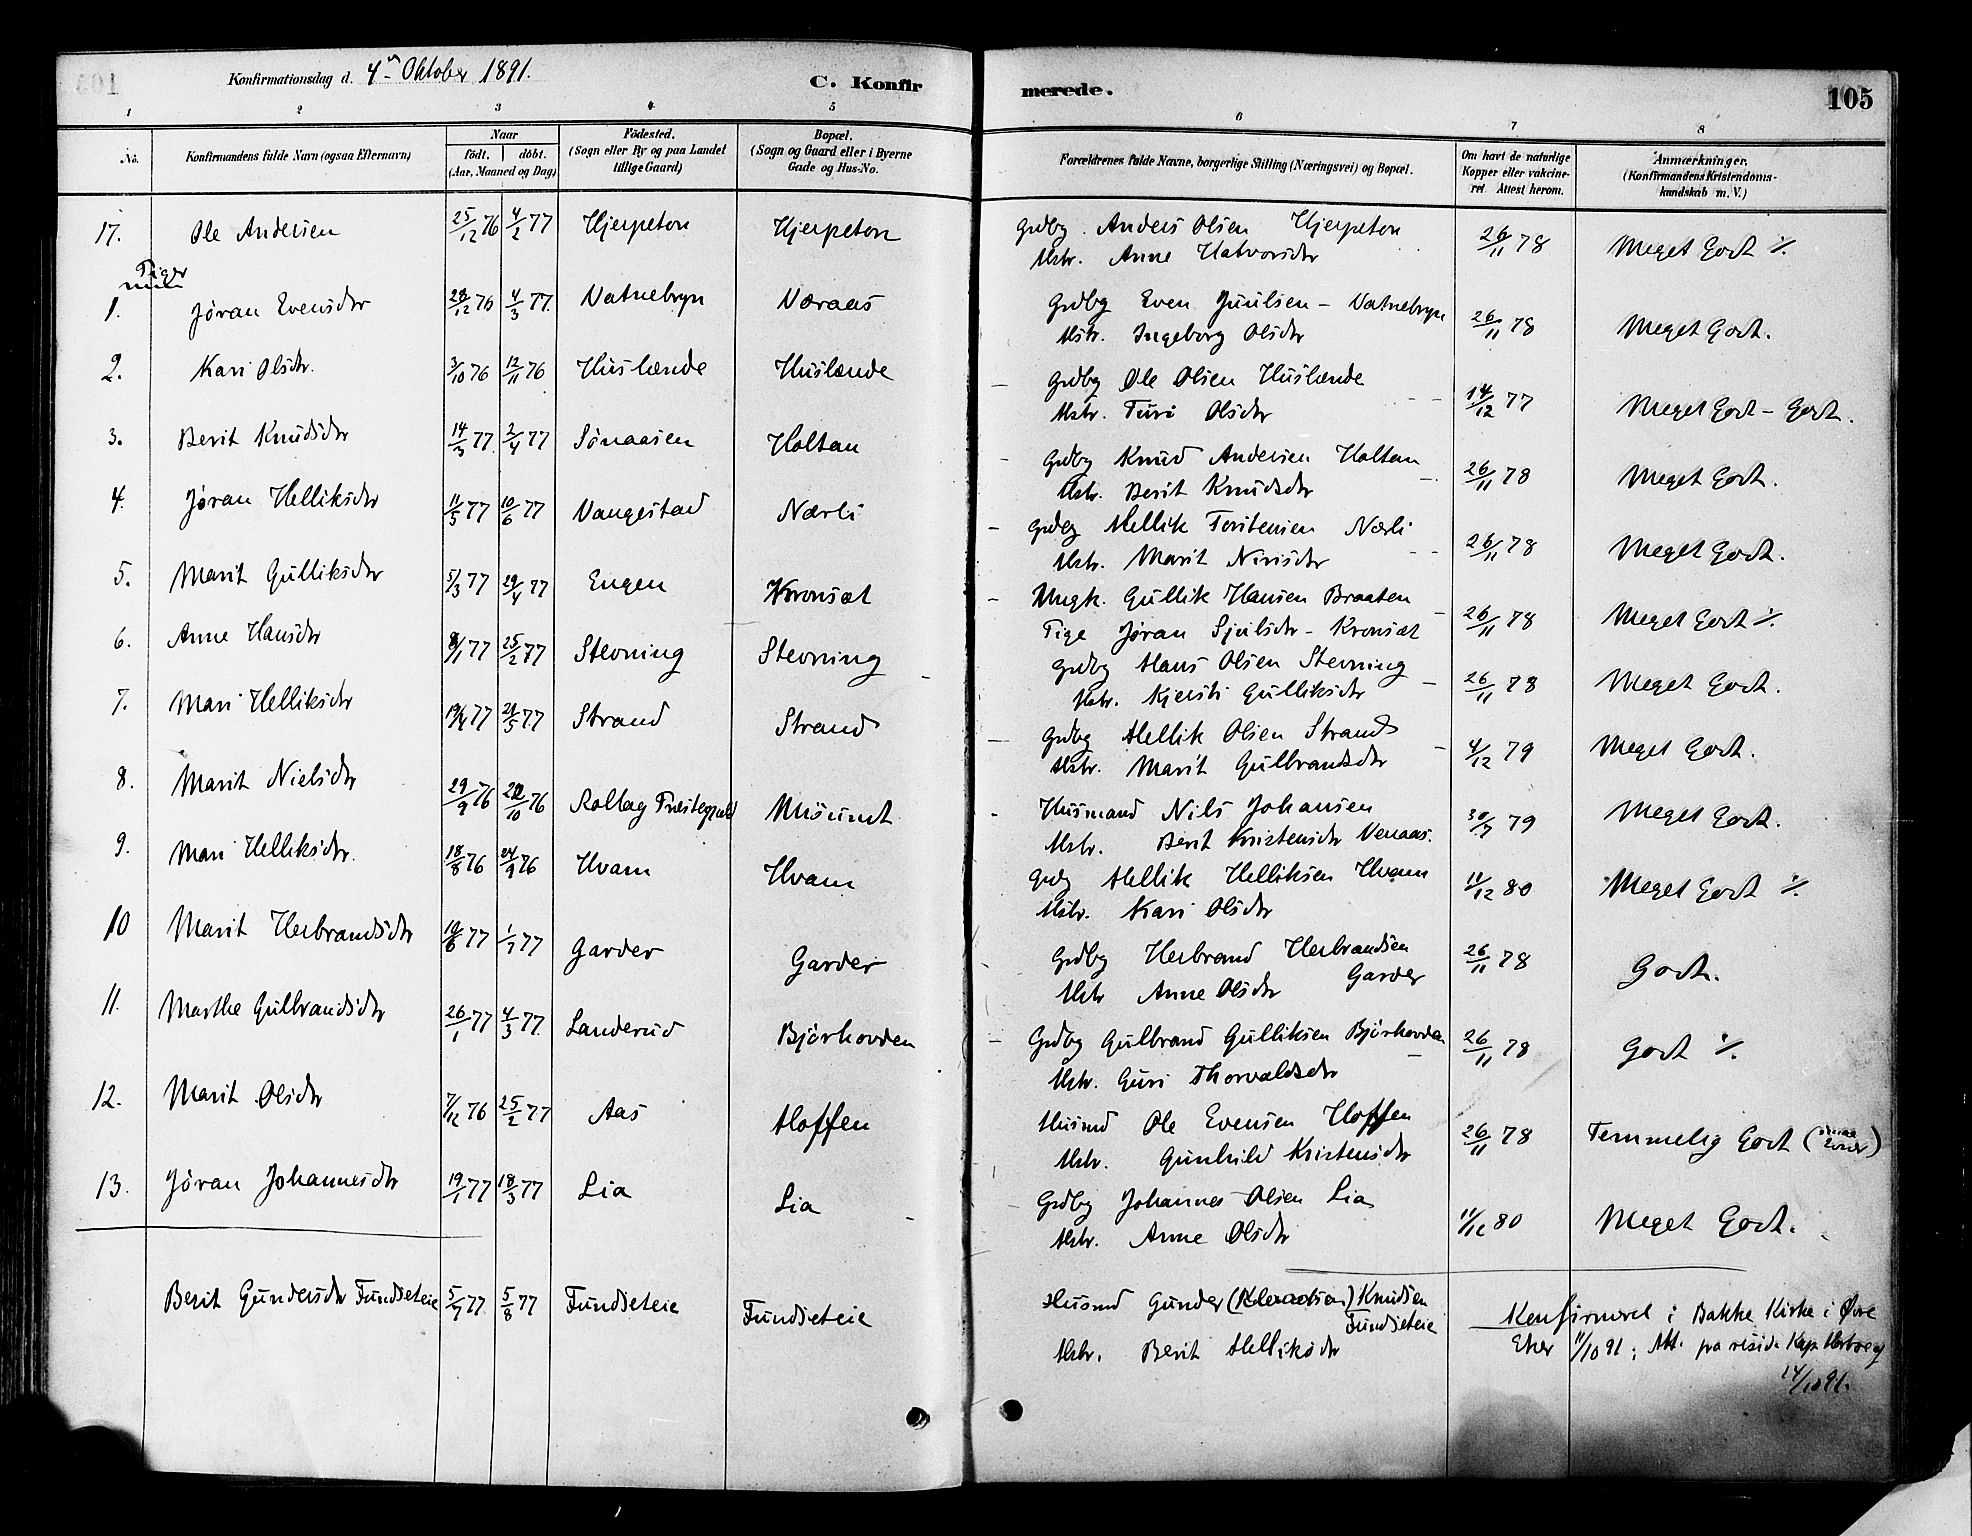 Konfirmationsdag d. 4de Oktober 1891.
C. Konfir
merede.
105
1 2 3 4 5 6 7 8
No.
Konfirmandens fulde Navn (ogsaa Efternavn)
Naar
födt. döbt.
(Aar, Maaned og Dag)
Födested.
(Sogn eller By og paa Landet
tillige Gaard)
Bopæl.
(Sogn og Gaard eller i Byerne
Gade og Hus-No.
Forældrenes fulde Navne, borgerlige Stilling (Næringsvei) og Bopæl.
Om havt de naturlige
Kopper eller vakcine-
ret Attest herom.
Anmærkninger.
(Konfirmandens Kristendoms-
kundskab m. V.)
17. Ole Andersen 25/12 76 4/2 77 Hjerpeton Hjerpeton Grdbg. Anders Olsen Hjerpeton 26/11 78 Meget Godt ٪.
Hstr. Anne Halvorsdtr
Piger
1. Jøran Evensdtr 28/12 76 4/3 77. Vatnebryn Væraas Grdbg Even Juulsen - Vatnebryn 26/11 78 Meget Godt.
Hstr. Ingeborg Olsdtr
2. Kari Olsdtr. 3/10 76 12/11 76 Huslænde Huslænde Grdbg Ole Olsen Huslænde 14/12 77 Meget Godt - Godt.
Hstr. Turi Olsdtr
3. Berit Knudsdtr 14/3 77. 2/4 77 Sønaasen Holtan Grdbg Knud Andersen Holtan 26/11 78 Meget Godt.
Hstr. Berit Knudsdtr
4. Jøran Helliksdtr 11/5 77 10/6 77 Vangestad Nærli Grdbg Hellik Torstensen Nærli 26/11 78 Meget Godt.
Hstr. Marit Nirisdtr
5. Marit Gulliksdtr 5/3 77 29/4 77 Engen Kronsæt Ungk. Gullik Hansen Braaten 26/11 78 Meget Godt ٪.
Pige Jøran Sjulsdtr - Kronsæt
6. Anne Hansdtr 8/1 77 25/2 77 Stevning Stevning Grdbg Hans Olsen Stevning 26/11 78 Meget Godt.
Hstr. Kjersti Gulliksdtr
7. Mari Helliksdtr 19/4 77 21/5 77 Strand Strand Grdbg Hellik Olsen Strand 4/12 79 Meget Godt.
Hstr. Marit Gulbrandsdtr
8. Marit Nielsdtr 29/9 76 22/10 76 Rollag Præstegaard Misundt Husmand Nils Johansen 30/7 79 Meget Godt.
Hstr. Berit Kristensdtr Venaas.
9. Mari Helliksdtr. 18/8 76 24/9 76 Hvam Hvam Grdbg Hellik Helliksen Hvam 11/12 80 Meget Godt ٪.
Hstr. Kari Olsdtr
10 Marit Herbrandsdtr 10/6 77 1/7 77 Garder Garder Grdbg Herbrand Herbrandsen 26/11 78 Godt.
Hstr Anne Olsdtr Garder
11. Marthe Gulbrandsdtr 26/1 77 4/3 77. Landerud Bjørkovden Grdbg Gulbrand Gulliksen Bjørkovden 26/11 78 Godt ٪.
Hstr. Guri Thorvaldsdtr
12. Marit Olsdtr 7/12 76 25/2 77 Aas Hoffen Husmd Ole Evensen Hoffen 26/11 78 Temmelig Godt
Hstr. Gunhild Kristensdtr
13. Jøran Johannesdtr 19/1 77 18/3 77 Lia Lia Grdbg Johannes Olsen Lia 11/12 80 Meget Godt.
Hstr. Anne Olsdtr
Berit Gundersdtr Fundseteie 5/7 77 5/8 77 Fundseteie Fundseteie Husmd Gunder Knudsen Konfirmeret i Bakke Kirke i Øvre
Fundseteie
Hstr. Berit Helliksdtr Eker 11/10 91; Att. fra resid. Kap.
14/10 91.